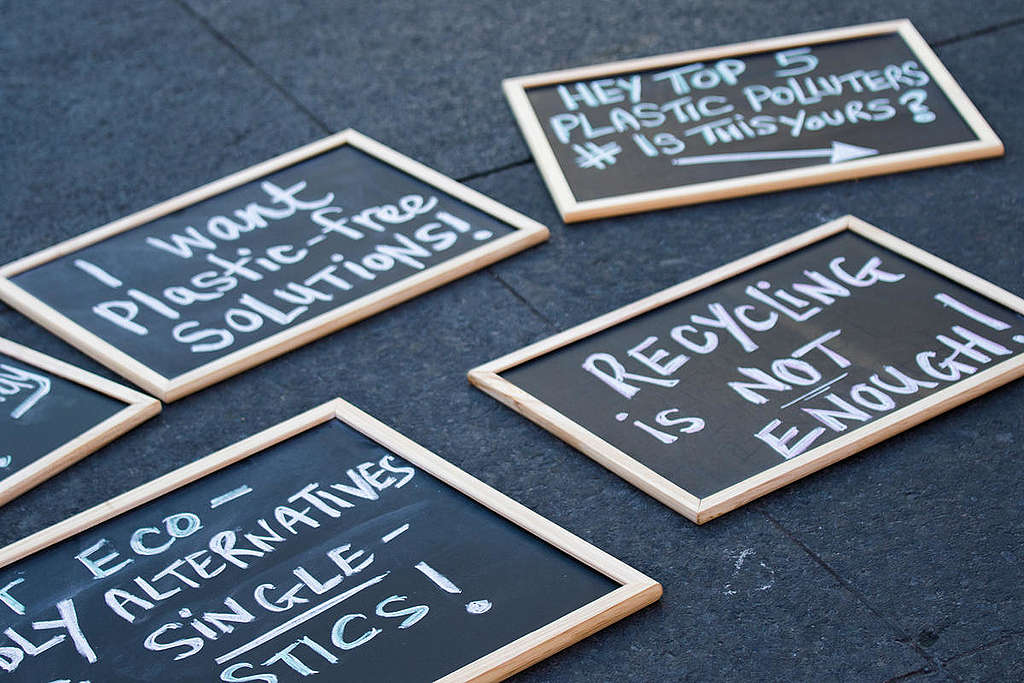 HEY TOP 5
PLASTIC POLLUTERS
# IS THIS YOURS?
I want
Plastic-free
SOLUTIONS!
RECYCLING
is NOT
ENOUGH!
ECO-
ALTERNATIVES
SINGLE-